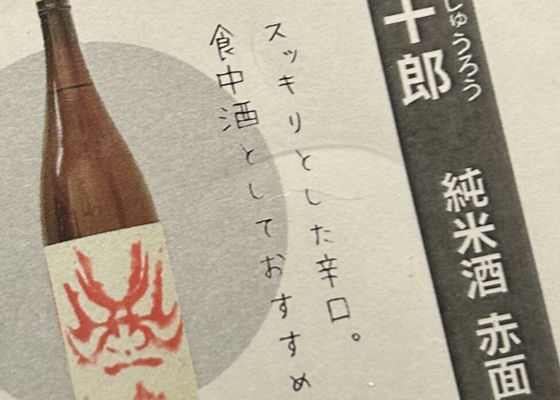 十郎
じゅうろう
純米酒 赤面
スッキリとした辛口。
食中酒としておすすめ